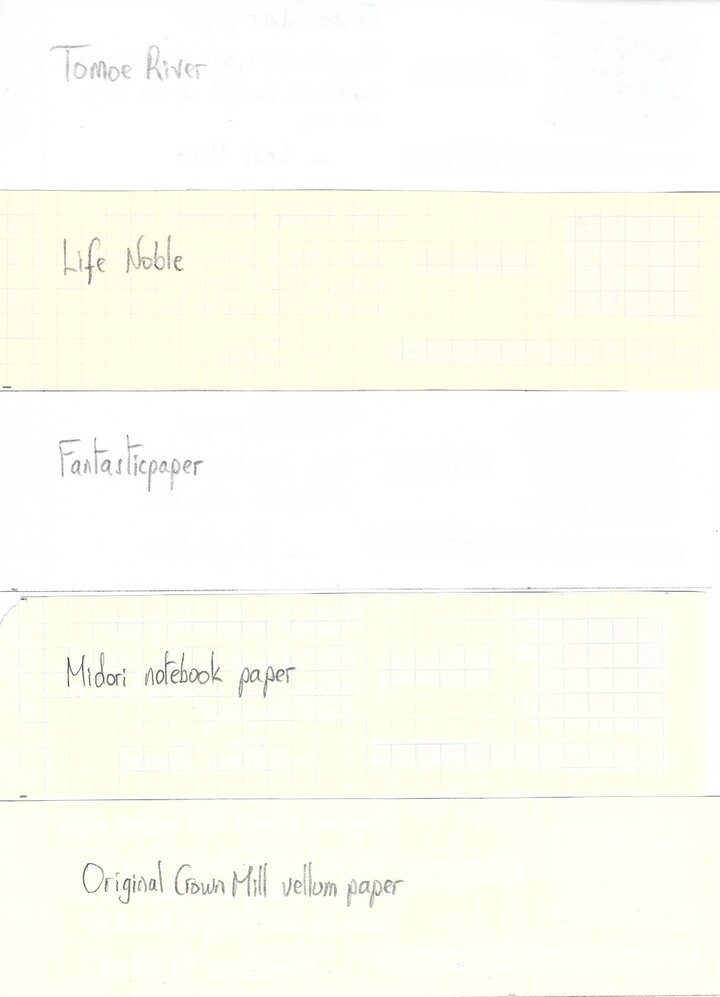 Tomoe River
Life Noble
Fantasticpaper
Midori notebook paper
Original Crown Mill vellum paper